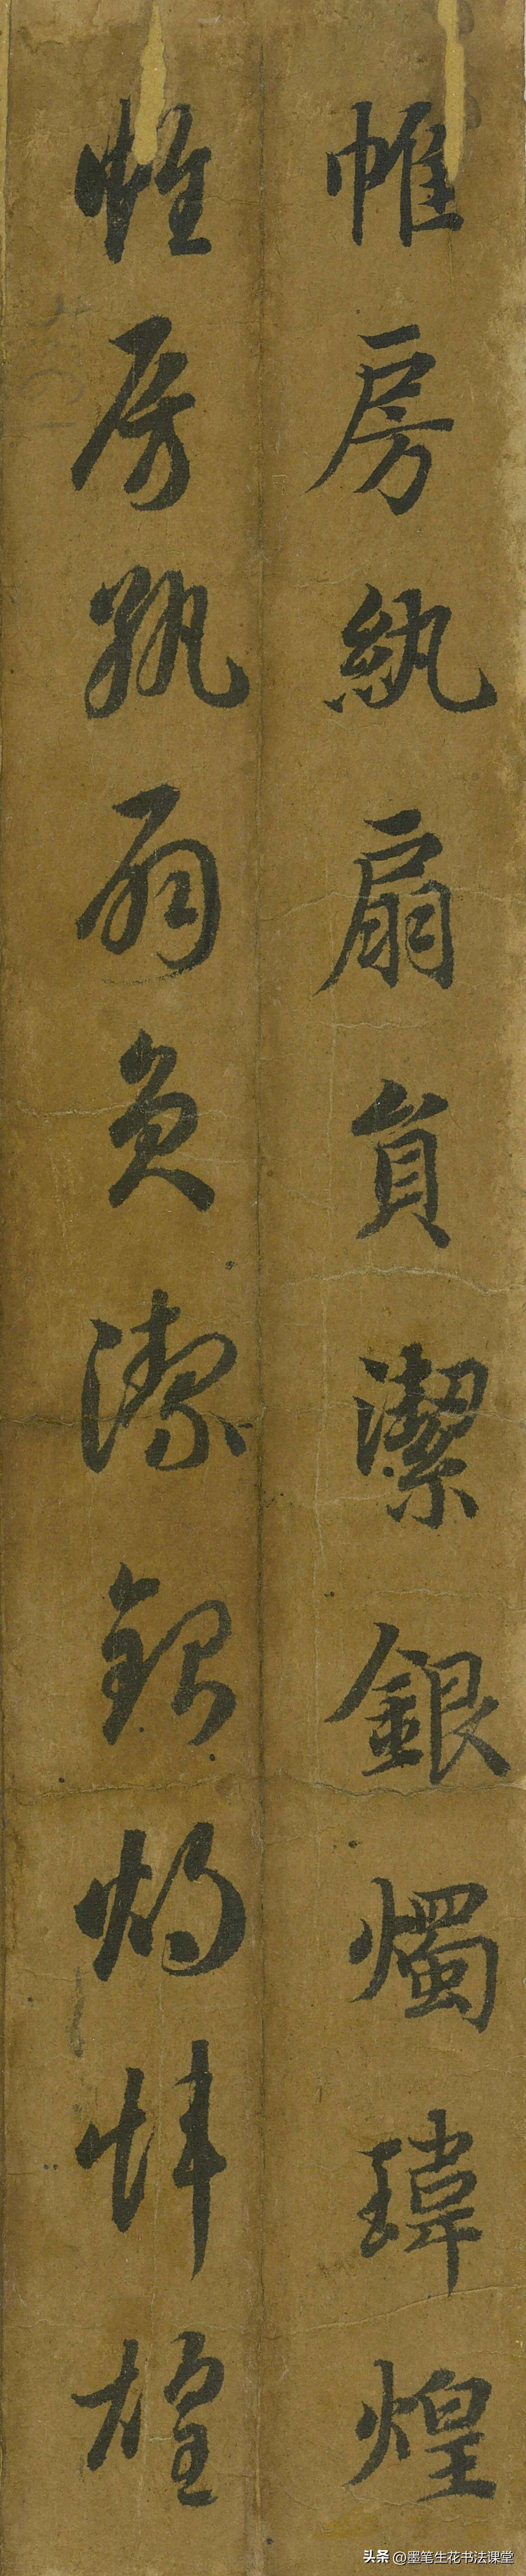 帷房紈扇員潔銀燭瑋煌
帷房紈扇員潔銀燭煒煌
头条 @墨笔生花书法课堂